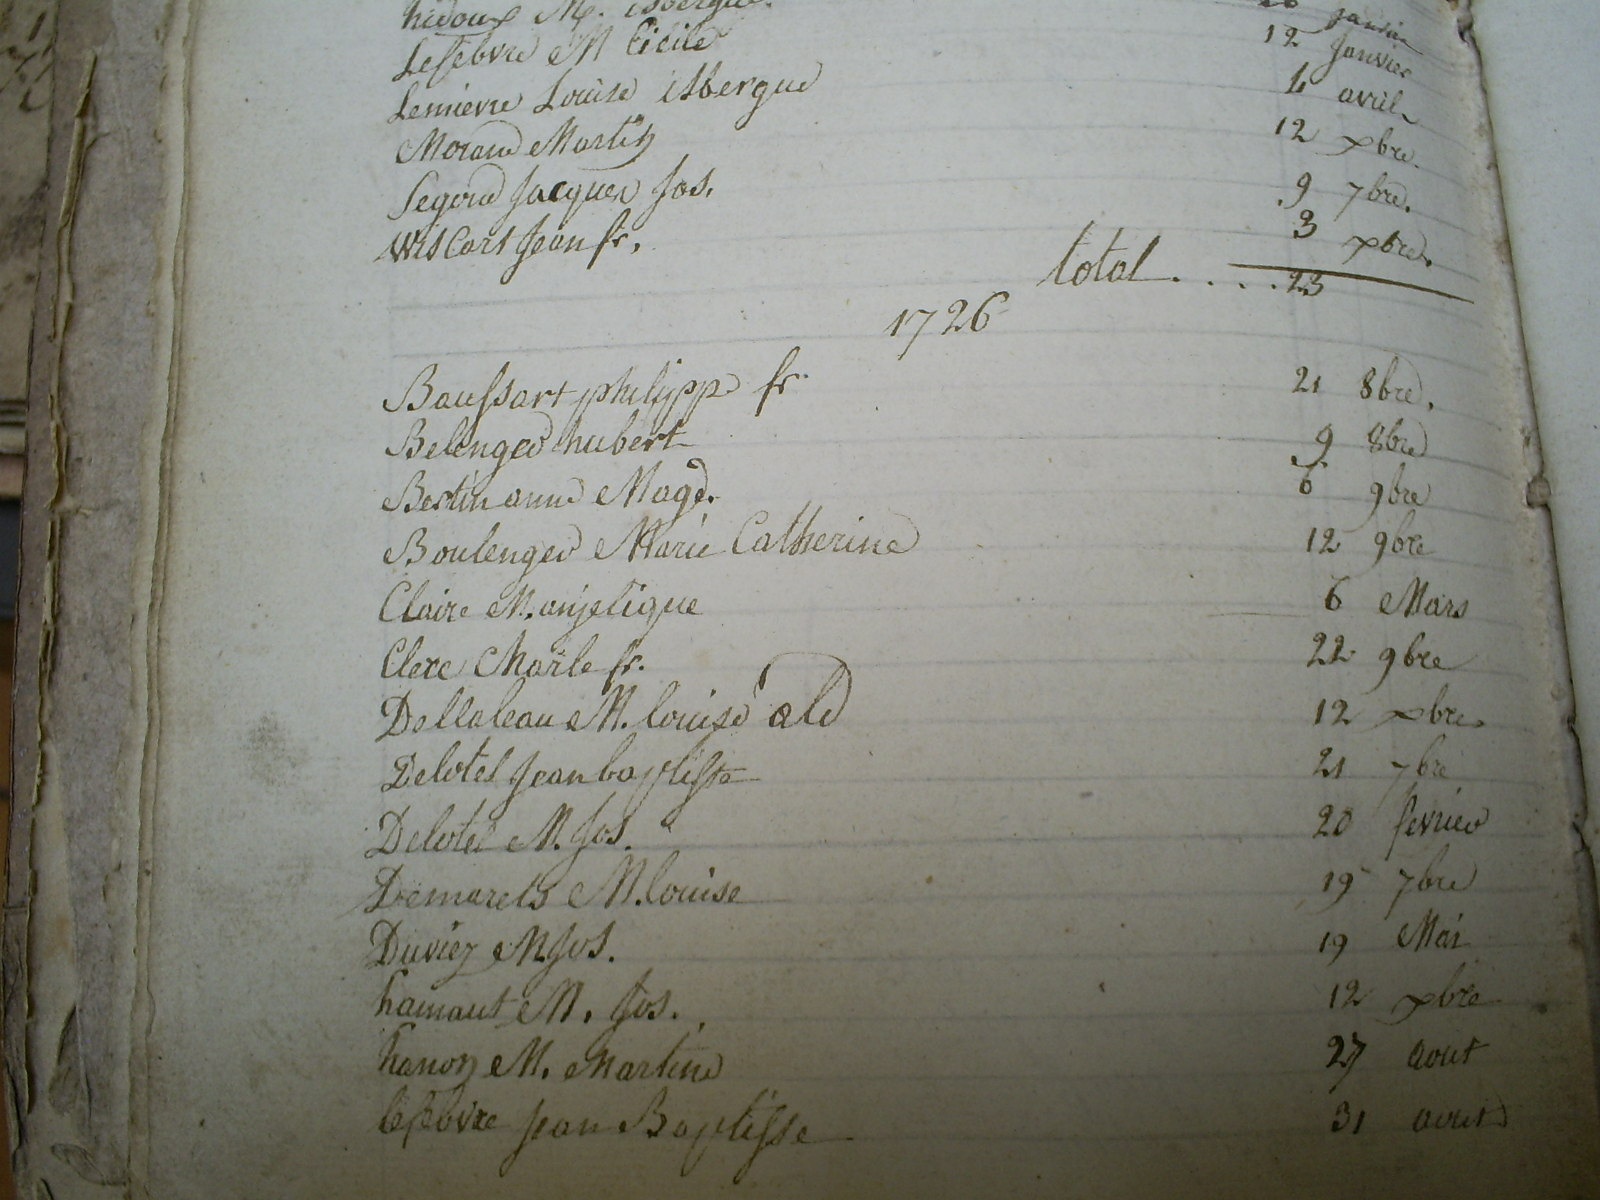 hidoux M. isbergue. 26 janvier
Lefebvre M Cicile 12 Janvier
Lemievre Louise isbergue 4 avril
Morand Martin 12 xbre.
Segond Jacques Jos. 9 7bre.
Wiscart Jean fr. 3 xbre.
total .... 23
1726
Baussart philippe fr. 21 8bre.
Belenger hubert 9 8bre
Bertin anne Magd. 6 9bre
Boulenger Marie Catherine 12 9bre
Claire M. anjelique 6 Mars
Clerc Charle fr. 22 9bre
Dellaleau M. louise ald 12 xbre
Delotel Jean baptiste 21 7bre
Delotel M. Jos. 20 fevrier
Demarets M. louise 19 7bre
Duviez M. Jos. 19 Mai
hamaut M. Jos. 12 xbre
hanon M. Martine 27 aout
lefebvre Jean Baptisse 31 aout